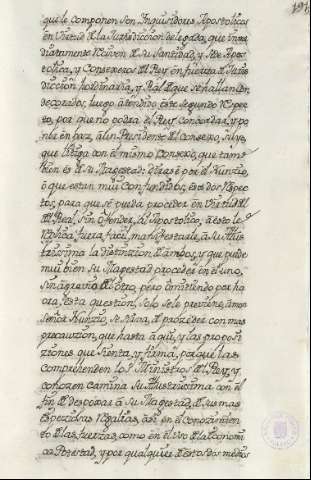 que le componen son Inquisidores Apostolicos
en Virtud de la Jurisdiccion delegada, que inme
diatamente reciven de Su Santidad, y Sede Apos
tolica, y Consexeros del Rey en fuerza de Juris
diccion hordinaria, y Real de que se hallan con
decorados, luego atendido este segundo respec
to, por que no podra el Rey concordar, y po
ner en paz, a un Presidente de el Consexo, Suyo,
que litiga con el mismo Consexo, que tam
bien es de su Magestad: dirase por el Nunzio,
o que estan mui Confundidos, esos dos respec
tos, para que se pueda proceder en virtud del
Real, sin ofender, al Apostolico, a esto le
replica, fuera facil, manifestarle, a Su Illus
trisima la distinzion de ambos, y que puede
mui bien su Magestad proceder en el uno,
sin agravio del otro, pero omitiendo por ha
ora esta question, solo se le previene, a mon
señor Nunzio, se sirva, de proceder con mas
precauzion, que hasta aqui, y las proposi
ziones que sienta, y firma, porque las
comprehenden los Ministros del Rey, y
conozen camina su Illustrisima con el
fin de despojar a Su Magestad, de sus mas
especiosas regalias, asi en el conozimien
to de las fuerzas, como en el uso de la economi
ca Potestad, y por qualquiera de estos dos medios